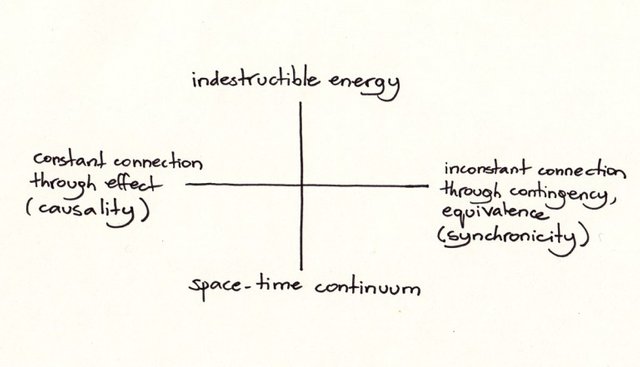 indestructible energy
constant connection
through effect
(causality)
inconstant connection
through contingency,
equivalence
(synchronicity)
space-time continuum